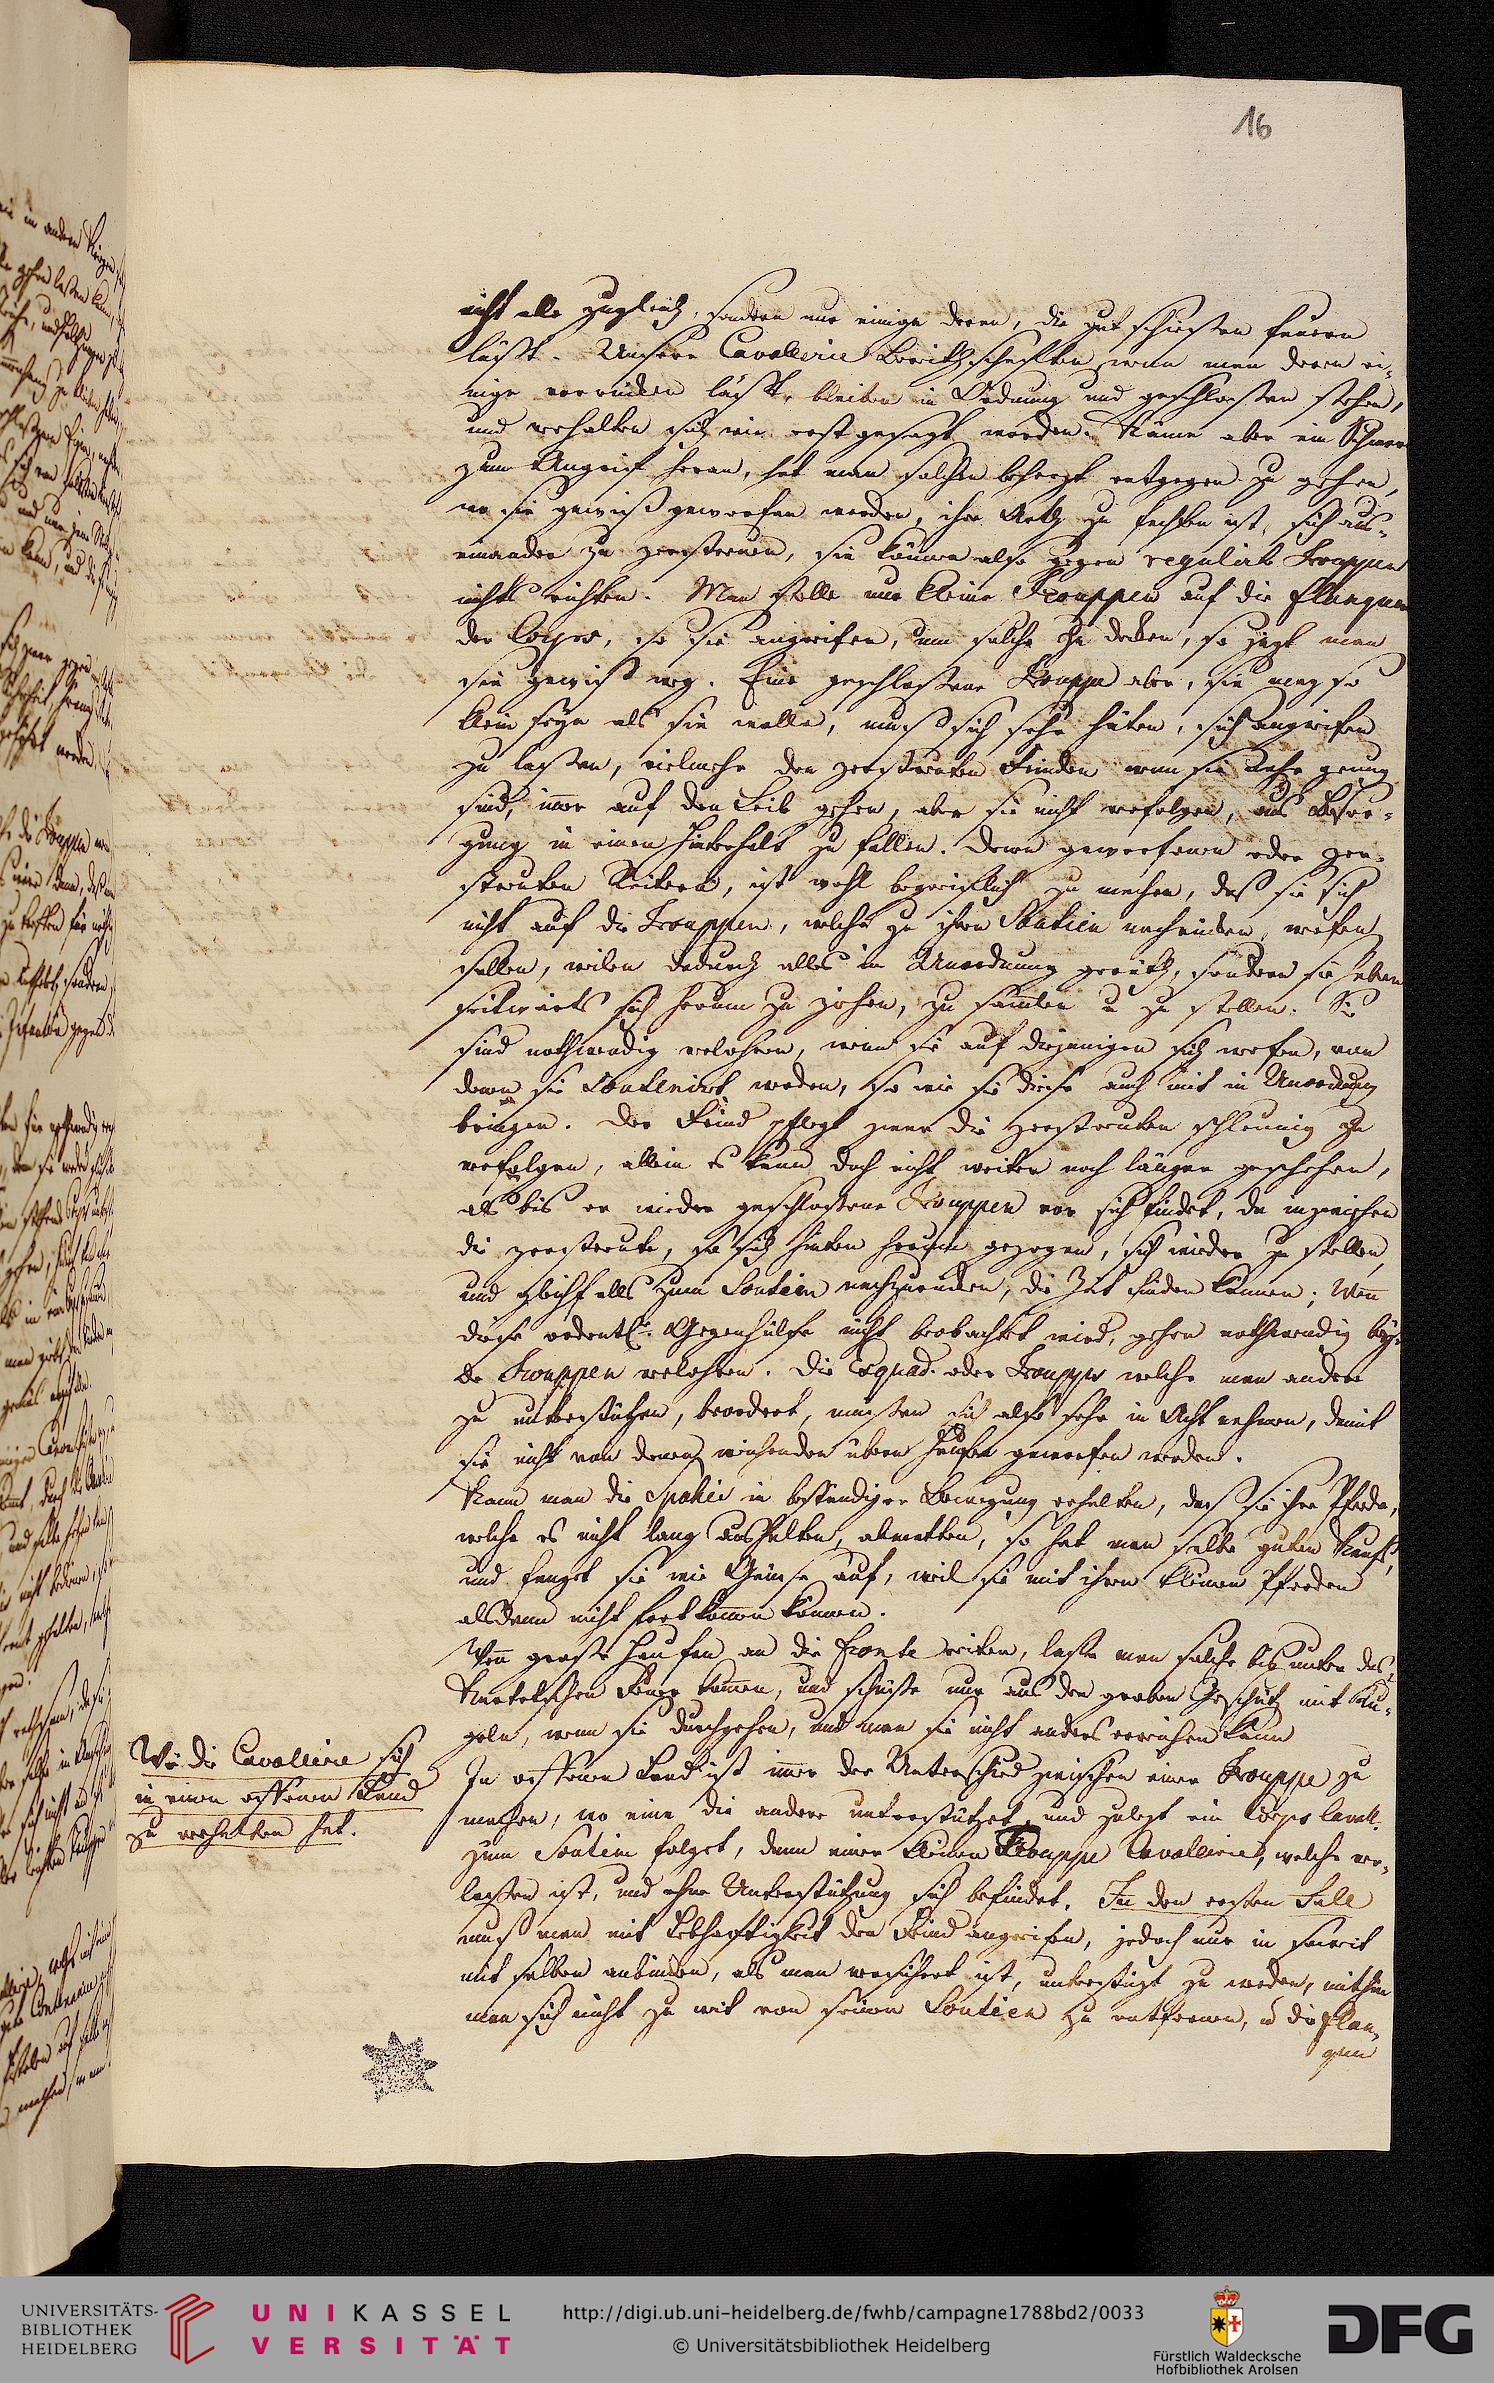 16
nicht alle zugleich, sondern nur einige deren, die gut schießen feuern
läßt. Unsere Cavallerie Bereitschaften wan man deren ei-
nige vorrücken läßt, bleiben in Ordnung und geschloßen stehen,
und verhalten sich wie erst gesagt worden. Käme aber ein Schwarm
zum Angrief heran, hat man solchen beherzt entgegen zu gehen,
wo sie gewiß geworfen werden, ihre Arth zu fechten ist, sich aus-
einander zu zerstreuen, sie können also gegen regulirte Trouppen
nichts richten. Man stelle nur kleine Trouppen auf die Flanquen
der Corps, so sie angreifen, um solche zu decken, so jagt man
sie gewiß weg. Eine geschloßene Trouppe aber, sie mag so
klein seyn als sie wolle, muß sich sehr hüten, sich angreifen
zu laßen, vielmehr den zerstreuten Feinden wan sie nahe genug
sind, immer auf den Leib gehen, aber sie nicht verfolgen, aus Besor-
gung in einen Hinterhalt zu fallen. Denen geworfenen oder zer-
streuten Reitern, ist wohl begreiflich zu machen, daß sie sich
nicht auf die Trouppen, welche zu ihren Soutien nachrücken, werfen
sollen, weilen dadurch alles in Unordnung geräth, sondern sie haben
seitwärts sich herum zu ziehen, zu samlen u zu stellen. Sie
sind nothwendig verlohren, wenn sie auf diejenigen sich werfen, von
denen sie Soutenirt werden, so wie sie diese auch mit in Unordnung
bringen. Der Feind pflegt zwar die zerstreuten schleunig zu
verfolgen, allein es kann doch nicht weiter noch länger geschehen,
als bis er wieder geschloßene Trouppen vor sich findet, da inzwischen
die zerstreute, so sich hinten herum gezogen, sich wieder zu stellen,
und gleichfalls zum Soutien nachzurücken, die Zeit finden können; Wen
diese ordentl. Gegenhülfe nicht beobachtet wird, gehen nothwendig bey-
de Trouppen verlohren. Die Esquad. oder Troupps welche man andere
zu unterstützen, beordert, müßen sich also sehr in Acht nehmen, damit
sie nicht von denen weichenden übern Haufen geworfen werden.
Kann man die Spahis in beständiger Bewegung erhalten, daß sie ihre Pferde,
welche es nicht lang aushalten, abmatten, so hat man selbe guten Kaufs,
und fanget sie wie Gänse auf, weil sie mit ihren kleinen Pferden
alsdann nicht fortkomen können.
Wen große Haufen an die Fronte reiten, laße man solche bis unter das
Kartetschen Feuer komen, und schieße nur aus den groben Geschütz mit Ku-
geln, wenn sie durchgehen, und man sie nicht anders erreichen kann
Wie die Cavallerie sich
in einen offenen Land
zu verhalten hat.
In offenen Land ist immer der Unterschied zwischen einer Trouppe zu
machen, wo eine die andere unterstützet, und zulezt ein Corps Cavall.
zum Soutien folget, dann einer kleinen Trouppe Cavallerie, welche ver-
laßen ist, und ohne Unterstützung sich befindet. In den ersten Fall
muß man mit Lebhaftigkeit den Feind angreifen, jedoch nur in soweit
mit selben anbinden, als man versichert ist, unterstüzt zu werden, mithin
man sich nicht zu weit von seinen Soutien zu entfernen, u die Flan-
quen
UNIVERSITÄTS-
BIBLIOTHEK
HEIDELBERG
UNIKASSEL
VERSITÄT
http://digi.ub.uni-heidelberg.de/fwhb/campagne1788bd2/0033
© Universitätsbibliothek Heidelberg
Fürstlich Waldecksche
Hofbibliothek Arolsen
DFG